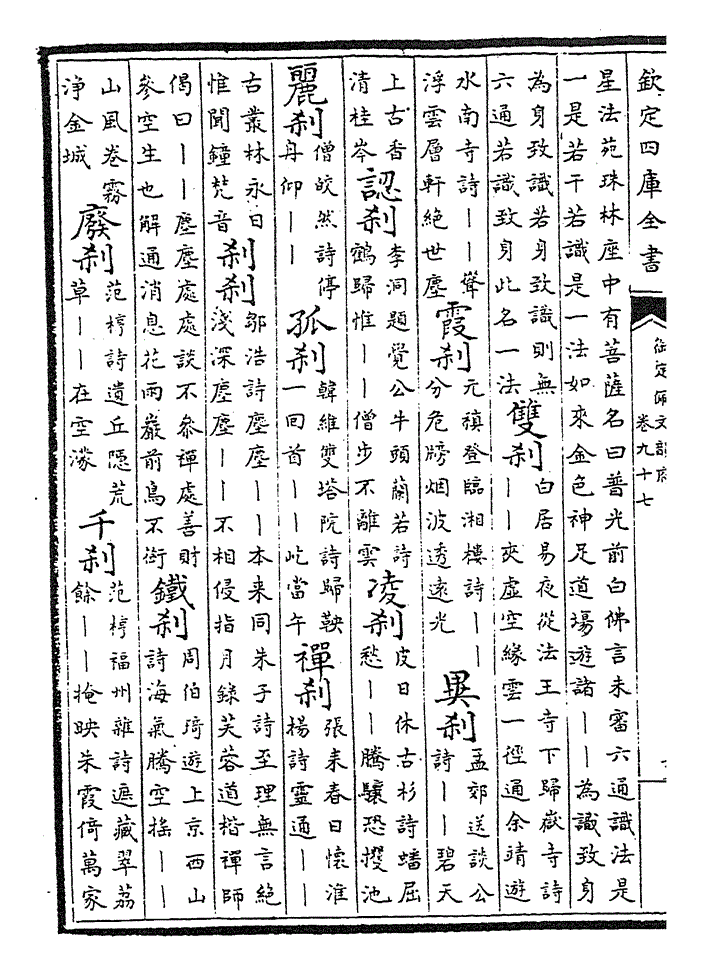 欽定四庫全書
御定佩文韻府
卷九十七
星法苑珠林座中有菩薩名曰普光前白佛言未審六通識法是
一是若干若識是一法如來金色神足道場遊諸——為識致身
為身致識若身致識則無
六通若識致身此名一法
雙刹
白居易夜從法王寺下歸嶽寺詩
——夾虛空緣雲一徑通余靖遊
水南寺詩——聳
浮雲層軒絕世塵
霞刹
元稹登臨湘樓詩——
分危牓烟波透遠光
異刹
孟郊送談公
詩——碧天
上古香
清桂岑
認刹
李洞題覺公牛頭蘭若詩
鶴歸惟——僧步不離雲
凌刹
皮日休古杉詩蟠屈
愁——騰驤恐攫池
麗刹
僧皎然詩停
舟仰——
孤刹
韓維雙塔院詩歸鞅
一回首——屹當午
禪刹
張耒春日懷淮
楊詩靈通——
古叢林永日
惟聞鐘梵音
刹刹
鄒浩詩塵塵——本来同朱子詩至理無言絕
淺深塵塵——不相侵指月錄芙蓉道楷禪師
偈曰——塵塵處處談不叅禪處善財
叅空生也解通消息花雨巖前鳥不銜
鐵刹
周伯琦遊上京西山
詩海氣騰空搖——
山風卷霧
淨金城
廢刹
范梈詩遺丘隱荒
草——在空濛
千刹
范梈福州雜詩遮藏翠荔
餘——掩映朱霞倚萬家